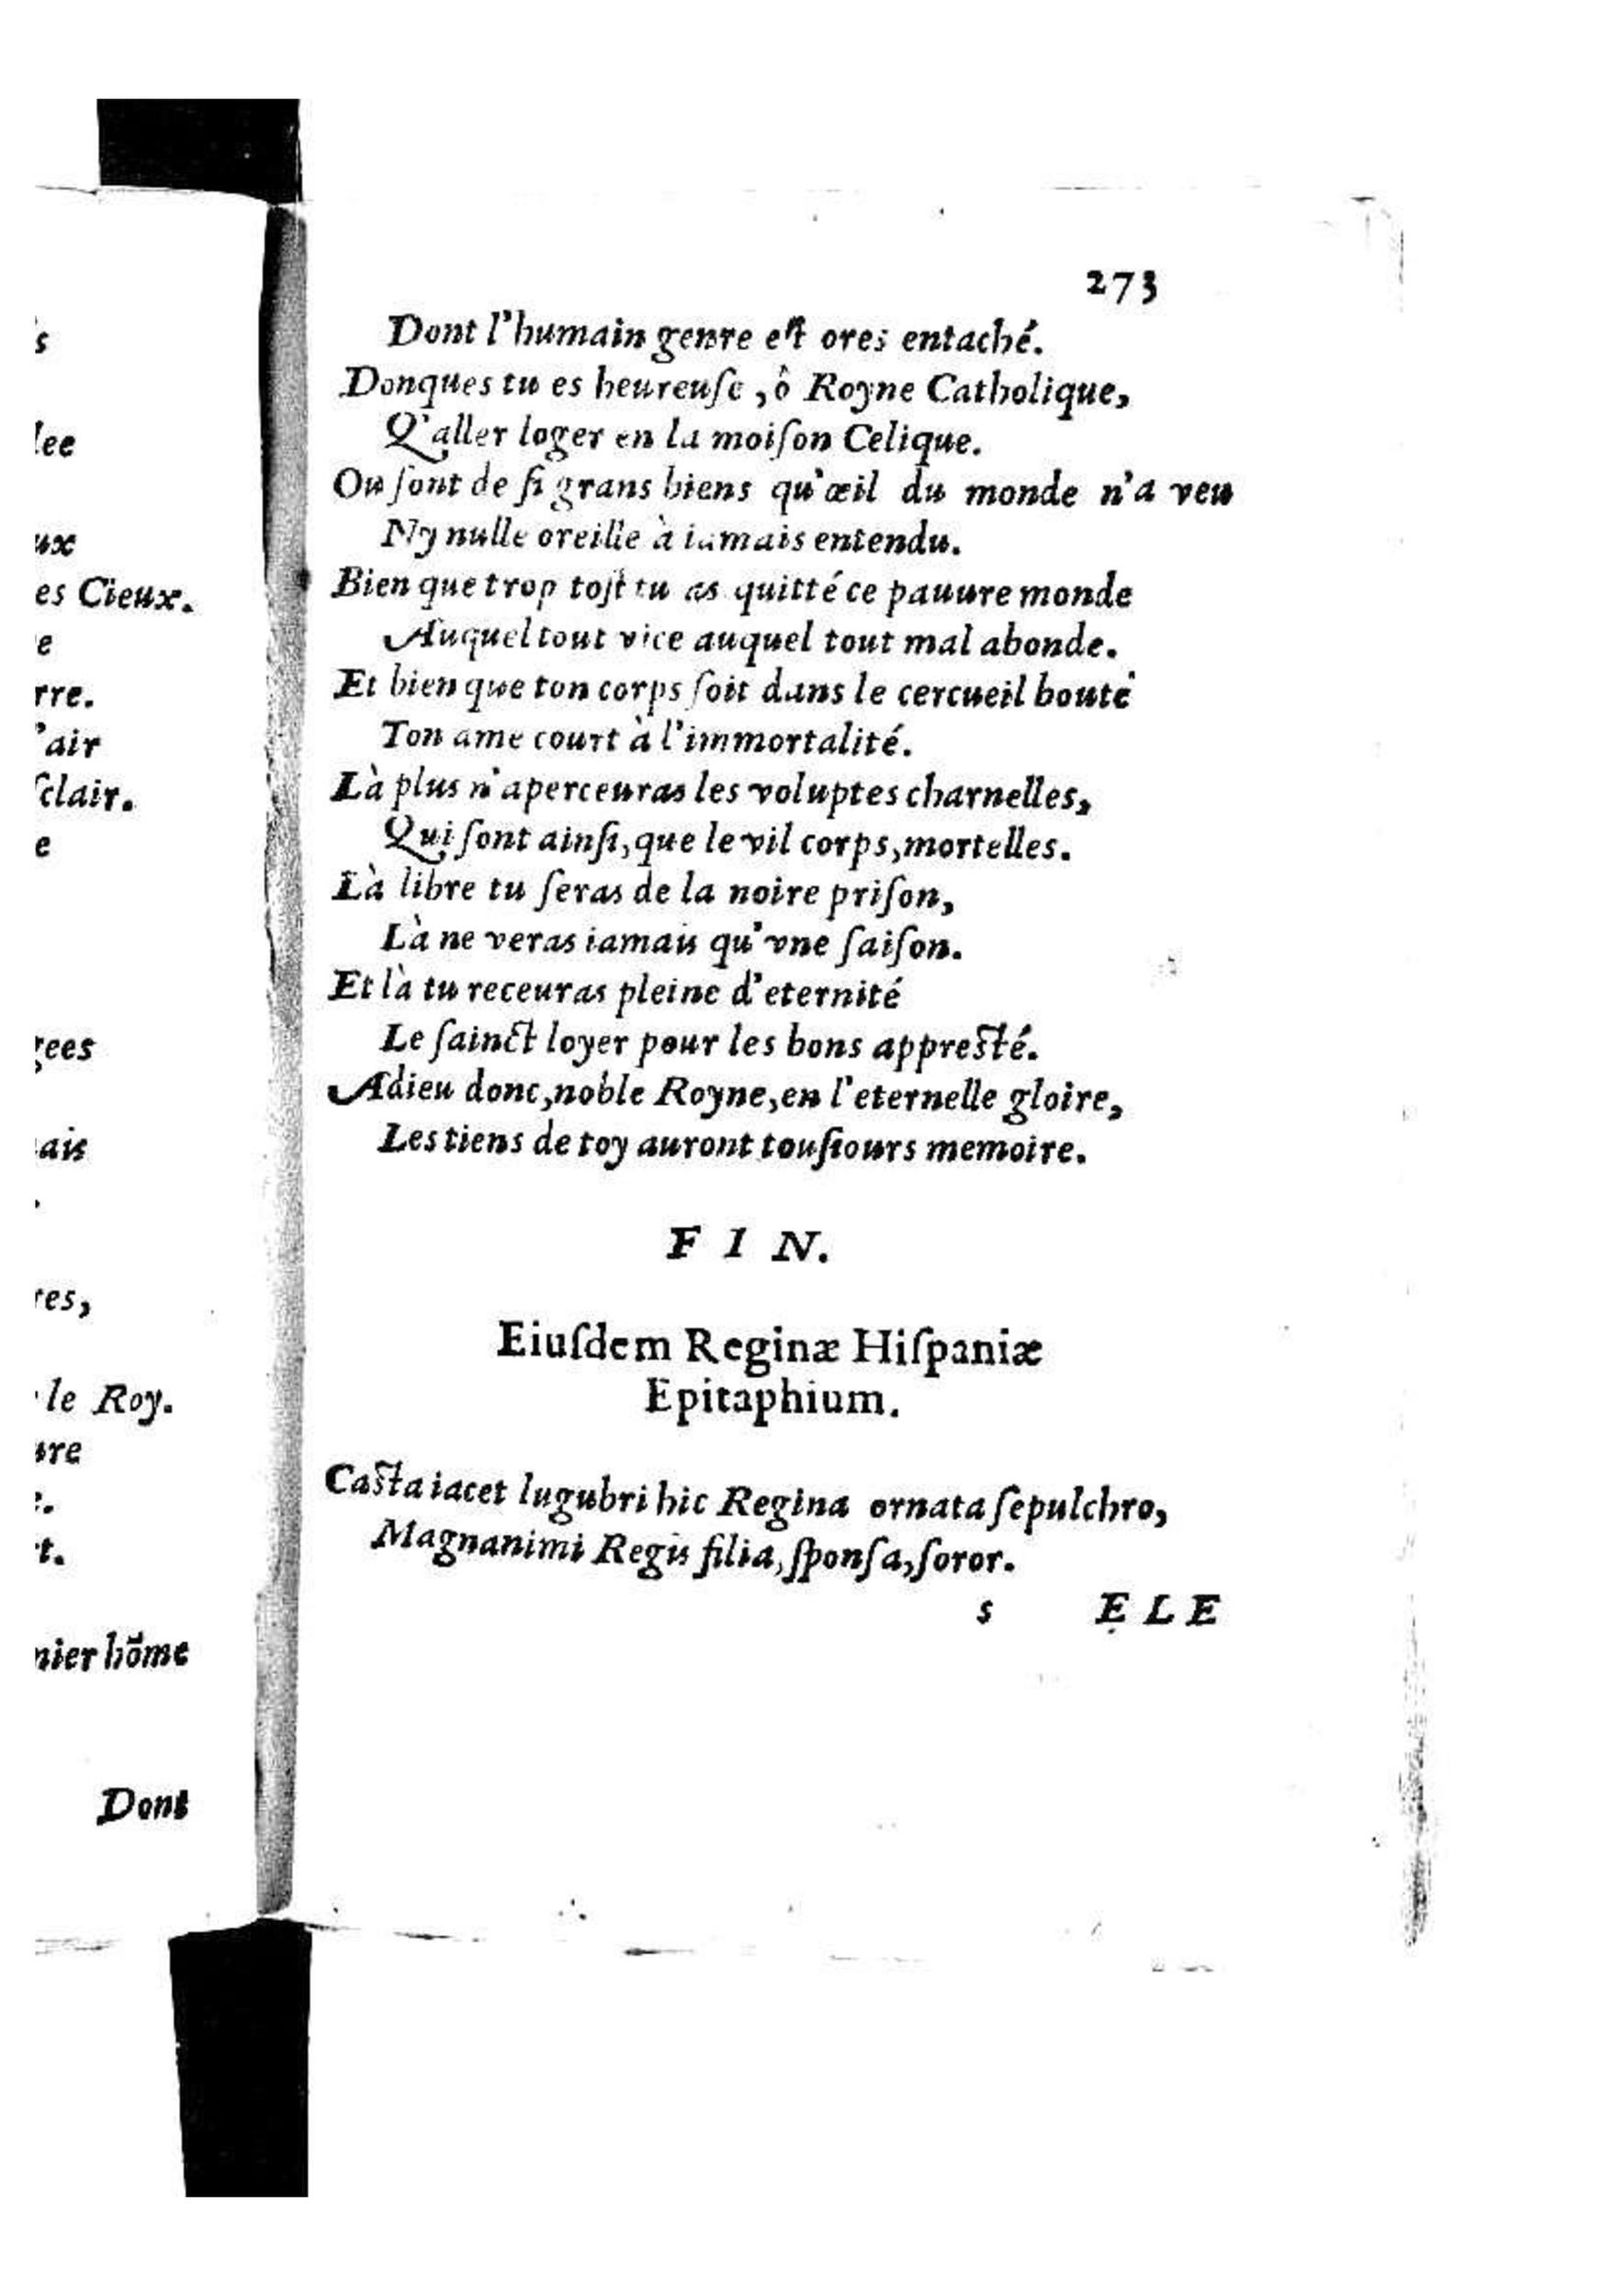 s
lee
ux
es Cieux.
e
rre.
'air
ſclair.
e
gees
ais
.
res,
le Roy.
ure
e.
t.
nier hõme
Dont
273
Dont l'humain genre est ores entaché.
Donques tu es heureuſe, ô Royne Catholique,
Q'aller loger en la moiſon Celique.
Ou ſont de ſi grans biens qu'œil du monde n'a veu
Ny nulle oreille à iamais entendu.
Bien que trop toſt tu as quitté ce pauure monde
Auquel tout vice auquel tout mal abonde.
Et bien que ton corps ſoit dans le cercueil bouté
Ton ame court à l'immortalité.
Là plus n'aperceuras les voluptes charnelles,
Qui ſont ainſi, que le vil corps, mortelles.
Là libre tu ſeras de la noire priſon,
Là ne veras iamais qu'vne ſaiſon.
Et là tu receuras pleine d'eternité
Le ſainct loyer pour les bons appresté.
Adieu donc, noble Royne, en l'eternelle gloire,
Les tiens de toy auront touſiours memoire.
F I N.
Eiuſdem Reginæ Hiſpaniæ
Epitaphium.
Casta iacet lugubri hic Regina ornata ſepulchro,
Magnanimi Regis filia, ſponſa, ſoror.
s E L E